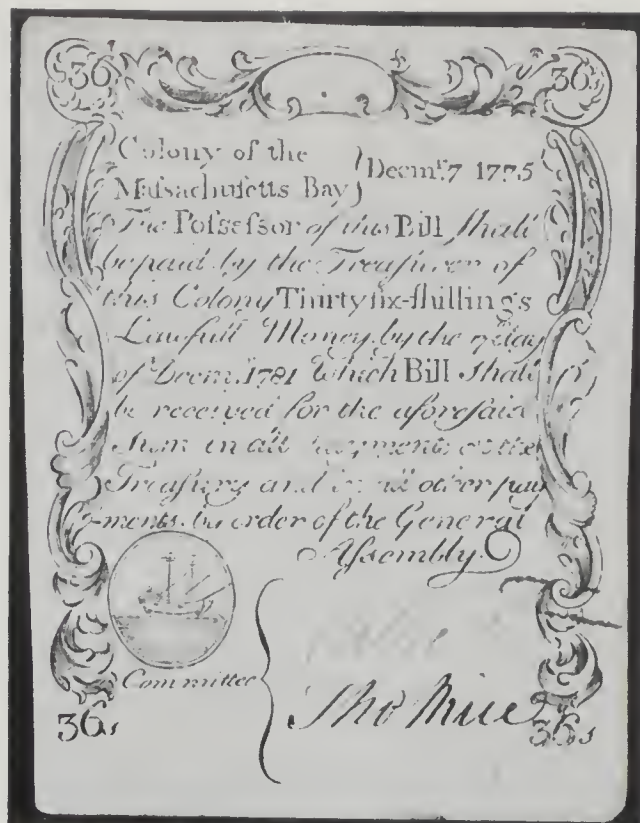 36 36s
Colony of the
Massachusetts Bay } Decmr. 7 1775
The Possessor of this Bill shall
be paid by the Treasurer of
this Colony Thirtysix-shillings
Lawfull Money by the 7 day
of Decem. 1781 Which Bill shall
be received for the aforesaid
Sum in all payments at the
Treasury and in all other pay
ments by order of the General
Assembly.
Committee
Tho
36s 36s